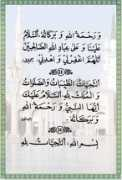 وَ رَحْمَةُ اللهِ وَ بَرَكَاتُهُ، اَلسَّلَامُ
عَلَيْنَا وَ عَلَى عِبَادِ اللهِ الصَّالِحِينَ
اَللّٰهُمَّ اغْفِرْ لِي وَ اهْدِنِي
اَلتَّحِيَّاتُ الطَّيِّبَاتُ وَالصَّلَوَاتُ
وَ الْمُلْكُ لِلّٰهِ اَلسَّلَامُ عَلَيْكَ
أَيُّهَا النَّبِيُّ وَ رَحْمَةُ اللهِ
وَ بَرَكَاتُهُ
بِسْمِ اللهِ، اَلتَّحِيَّاتُ لِلّٰهِ